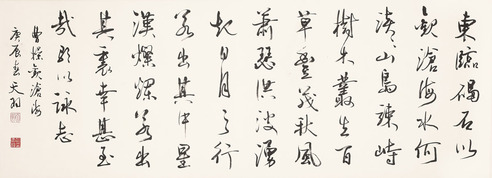 東臨碣石以
觀滄海水何
澹〻山島竦峙
樹木叢生百
草豐茂秋風
蕭瑟洪波湧
起日月之行
若出其中星
漢燦爛若出
其裏幸甚至
哉歌以詠志
曹操觀滄海
庚辰春天羽